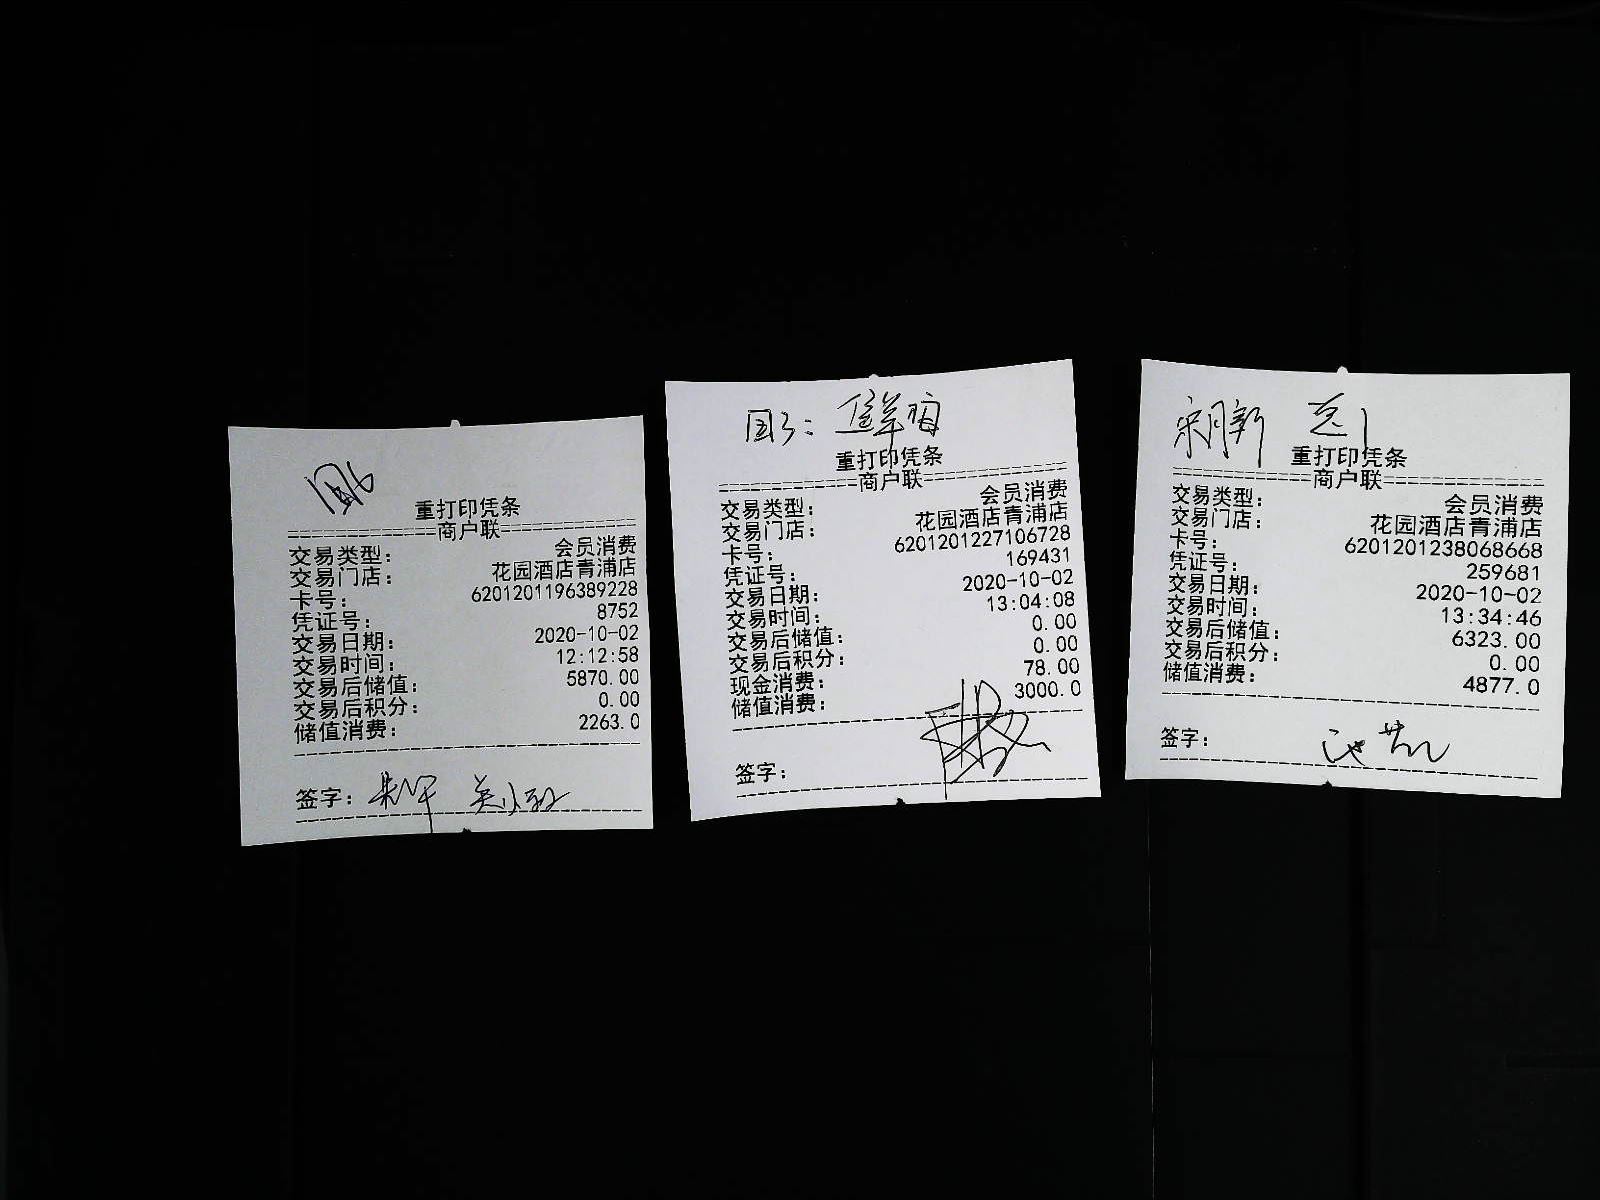 重打印凭条
商户联
交易类型： 会员消费
交易门店： 花园酒店青浦店
卡号： 6201201196389228
凭证号： 8752
交易日期： 2020-10-02
交易时间： 12:12:58
交易后储值： 5870.00
交易后积分： 0.00
储值消费： 2263.0
签字：
重打印凭条
商户联
交易类型： 会员消费
交易门店： 花园酒店青浦店
卡号： 6201201227106728
凭证号： 169431
交易日期： 2020-10-02
交易时间： 13:04:08
交易后储值： 0.00
交易后积分： 0.00
现金消费： 78.00
储值消费： 3000.0
签字：
重打印凭条
商户联
交易类型： 会员消费
交易门店： 花园酒店青浦店
卡号： 6201201238068668
凭证号： 259681
交易日期： 2020-10-02
交易时间： 13:34:46
交易后储值： 6323.00
交易后积分： 0.00
储值消费： 4877.0
签字：